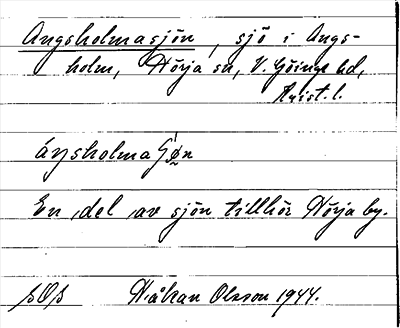 Angsholmasjön, sjö i Angs-
holm, Nörja sn, V. Göinge hd,
Krist. l.
áŋsholma
En del av sjön tillhör Nörja by.
sOs Håkan Olsson 1944.